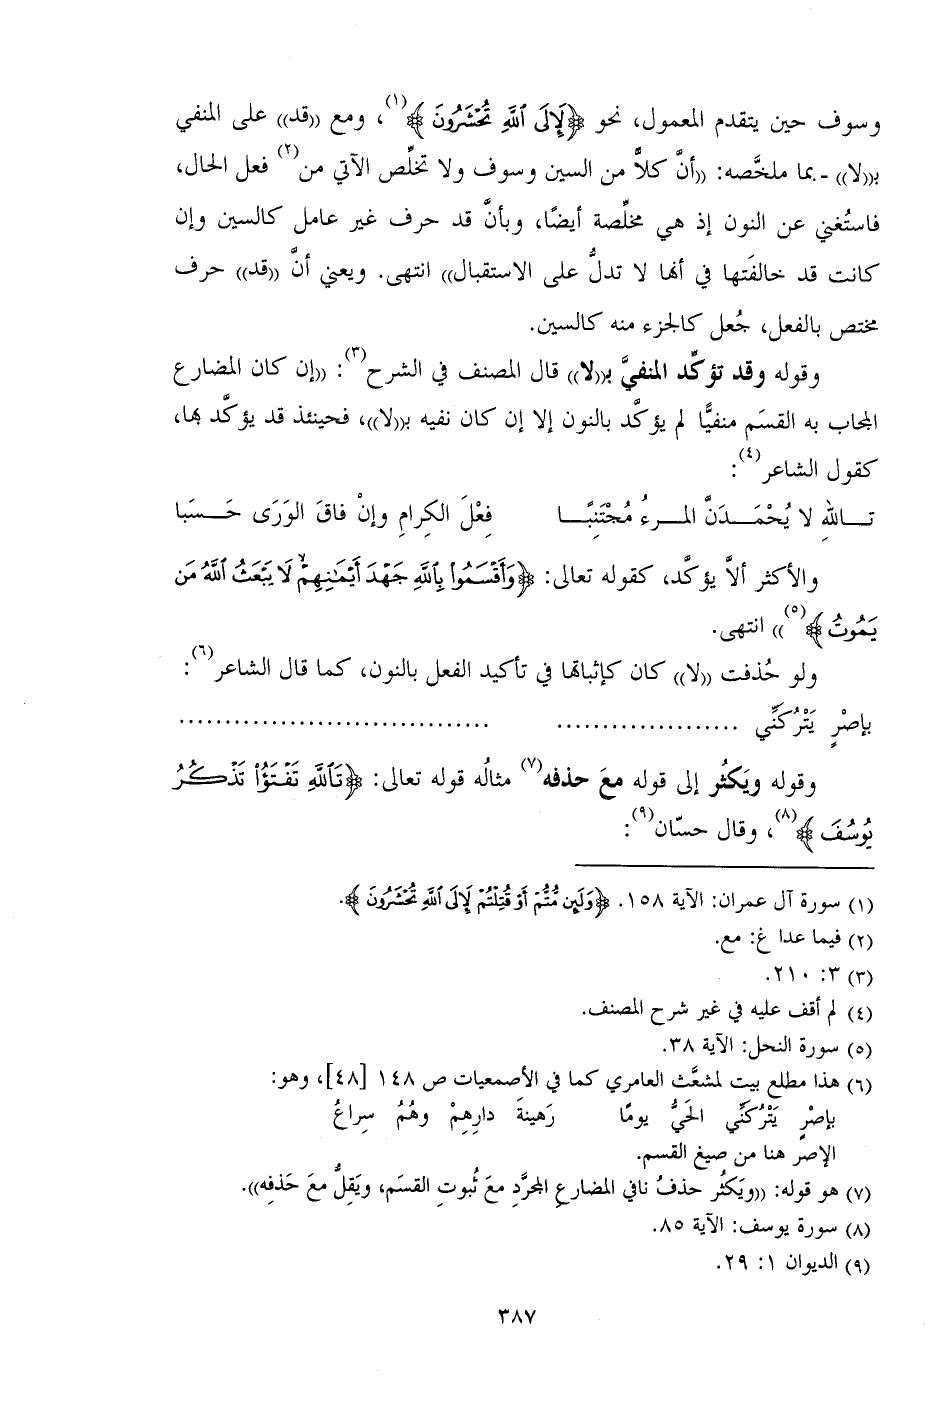 وسوف حين يتقدم المعمول، نحو ﴿لَإِلَى ٱللَّهِ تُحْشَرُونَ﴾(١)، ومع ((قد)) على المنفي
بـ((لا)) - بما ملخَّصه: ((أنَّ كلاًّ من السين وسوف ولا تخلِّص الآتي من(٢) فعل الحال،
فاستُغني عن النون إذ هي مخلِّصة أيضًا، وبأنَّ قد حرف غير عامل كالسين وإن
كانت قد خالفَتها في أنها لا تدلُّ على الاستقبال)) انتهى. ويعني أنَّ ((قد)) حرف
مختص بالفعل، جُعل كالجزء منه كالسين.
وقوله وقد تؤكِّد المنفيَّ بـ((لا)) قال المصنف في الشرح(٣): ((إن كان المضارع
المجاب به القسَم منفيًّا لم يؤكَّد بالنون إلا إن كان نفيه بـ((لا))، فحينئذ قد يؤكَّد بها،
كقول الشاعر(٤):
تـــاللهِ لا يُحْمَــدَنَّ المــرءُ مُجْتَنِبًــا فِعْلَ الكِرامِ وإنْ فاقَ الوَرَى حَـــسَبا
والأكثر ألاَّ يؤكَّد، كقوله تعالى: ﴿وَأَقْسَمُوا۟ بِٱللَّهِ جَهْدَ أَيْمَـٰنِهِمْ ۙ لَا يَبْعَثُ ٱللَّهُ مَن
يَمُوتُ﴾(٥))) انتهى.
ولو حُذفت ((لا)) كان كإثباتها في تأكيد الفعل بالنون، كما قال الشاعر(٦):
بإصْرٍ يَتْرُكَنِّي .................... ..................................
وقوله ويَكثُر إلى قوله معَ حذفه(٧) مثالُه قوله تعالى: ﴿تَٱللَّهِ تَفْتَؤُا۟ تَذْكُرُ
يُوسُفَ﴾(٨)، وقال حسّان(٩):
(١) سورة آل عمران: الآية ١٥٨. ﴿وَلَئِن مُّتُّمْ أَوْ قُتِلْتُمْ لَإِلَى ٱللَّهِ تُحْشَرُونَ﴾.
(٢) فيما عدا غ: مع.
(٣) ٣: ٢١٠.
(٤) لم أقف عليه في غير شرح المصنف.
(٥) سورة النحل: الآية ٣٨.
(٦) هذا مطلع بيت لمشعَّث العامري كما في الأصمعيات ص ١٤٨ [٤٨]، وهو:
بإصْرٍ يَتْرُكَنِّي الحَيُّ يومًا رَهينةَ دارِهِمْ وهُمُ سِراعُ
الإصر هنا من صيغ القسم.
(٧) هو قوله: ((ويَكثُر حذفُ نافي المضارعِ المجرَّدِ معَ ثُبوتِ القسَمِ، ويَقِلُّ معَ حَذفِه)).
(٨) سورة يوسف: الآية ٨٥.
(٩) الديوان ١: ٢٩.
٣٨٧